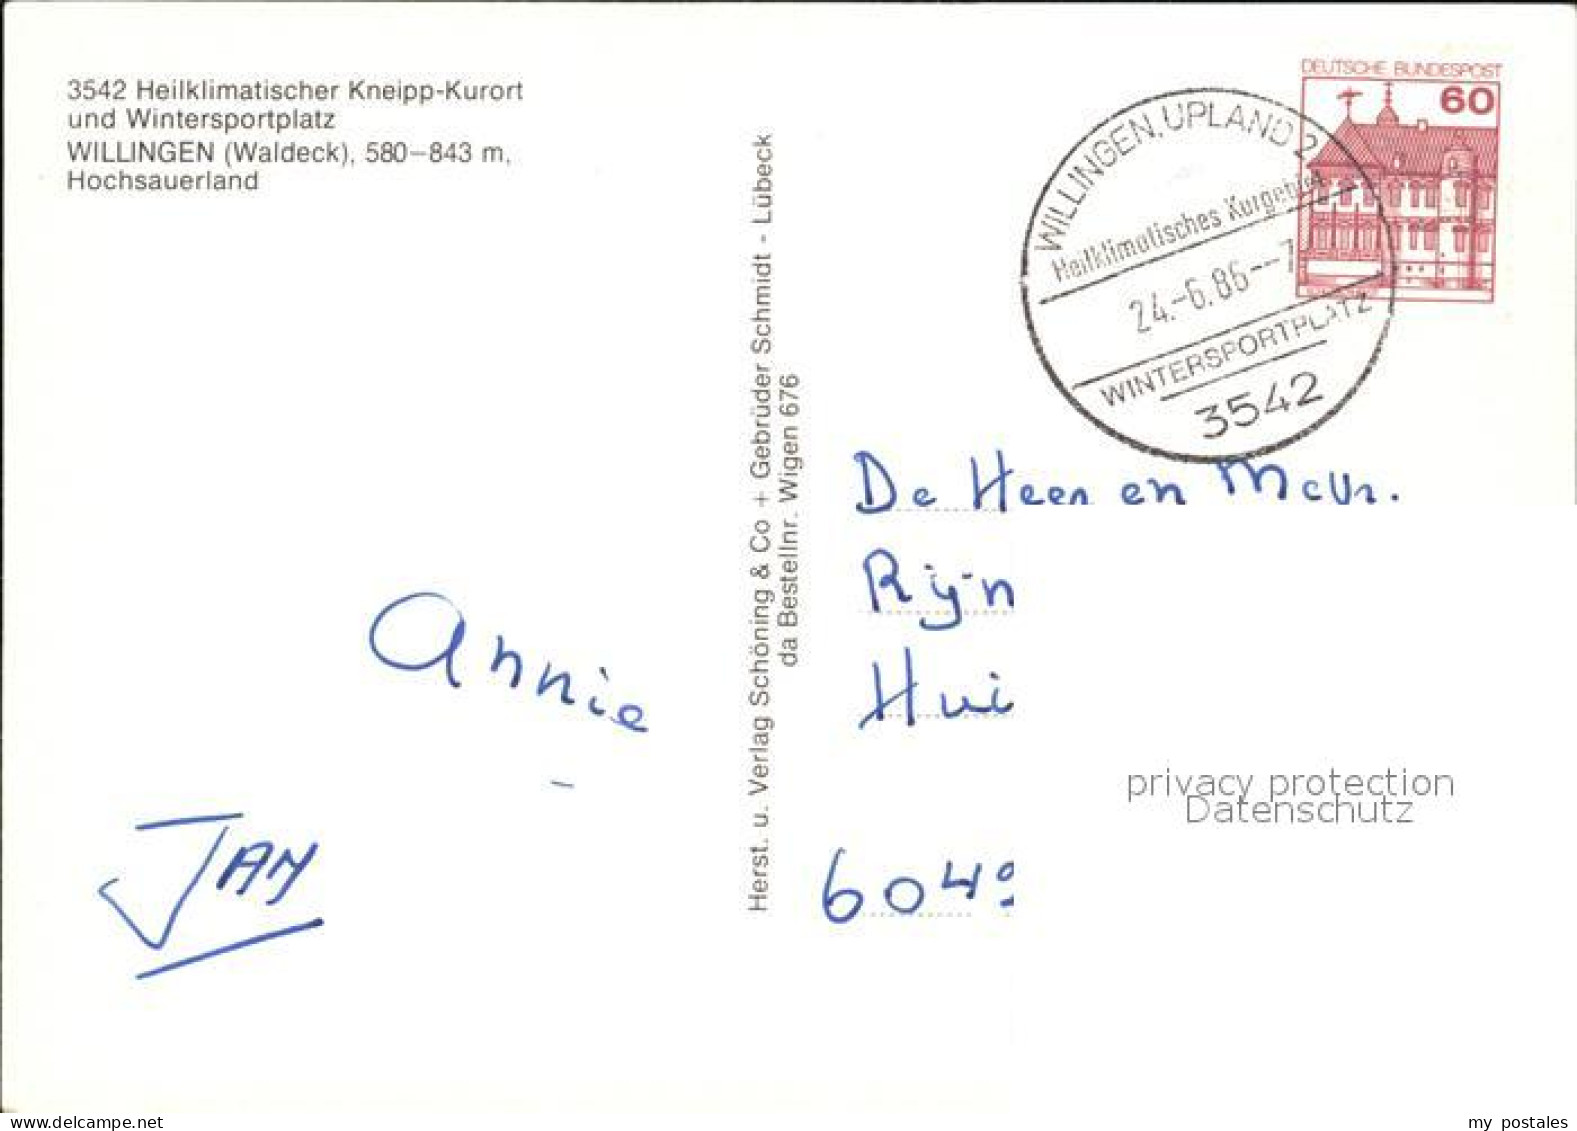 3542 Heilklimatischer Kneipp-Kurort
und Wintersportplatz
WILLINGEN (Waldeck), 580–843 m,
Hochsauerland
Annie
JAN
Herst. u. Verlag Schöning & Co + Gebrüder Schmidt - Lübeck
da Bestellnr. Wigen 676
DEUTSCHE BUNDESPOST
60
WILLINGEN, UPLAND 2
Heilklimatisches Kurgebiet
24.-6.86--
WINTERSPORTPLATZ
3542
De Heer en Mevr.
Rijn
Hui
6049
privacy protection
Datenschutz
www.delcampe.net
my postales